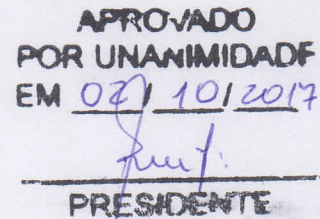 APROVADO
POR UNANIMIDADE
EM 02/10/2017
PRESIDENTE